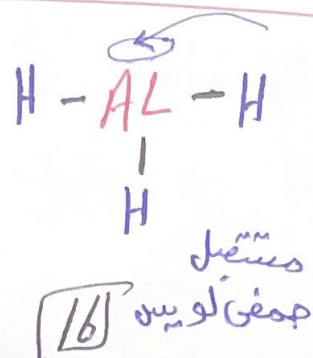 H - AL - H
H
مستقبل
حمض لويس
16